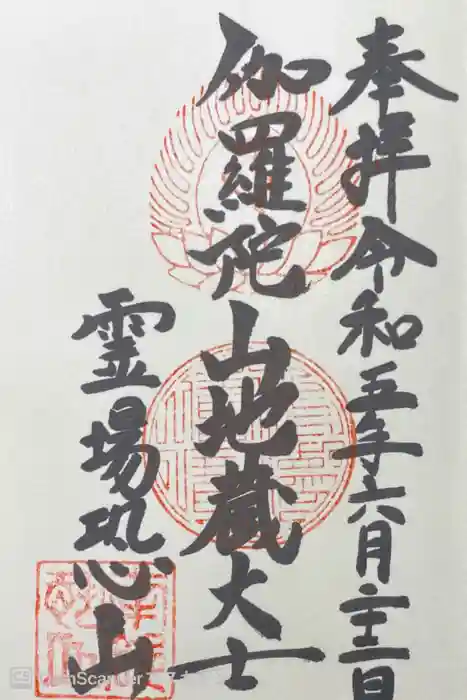 奉拝 令和五年六月二十三日
伽羅陀山地蔵大士
霊場恐山
CS CamScanner